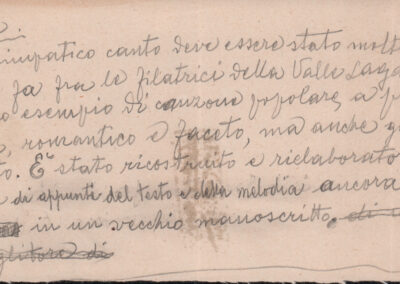 simpatico canto deve essere stato molt
fa fra le filatrici della Valle Laga
esempio di canzone popolare, a
romantico e faceto, ma anche
to. È stato ricostruito e rielaborato
di appunti del testo e della melodia ancora
in un vecchio manoscritto. di
glitore di